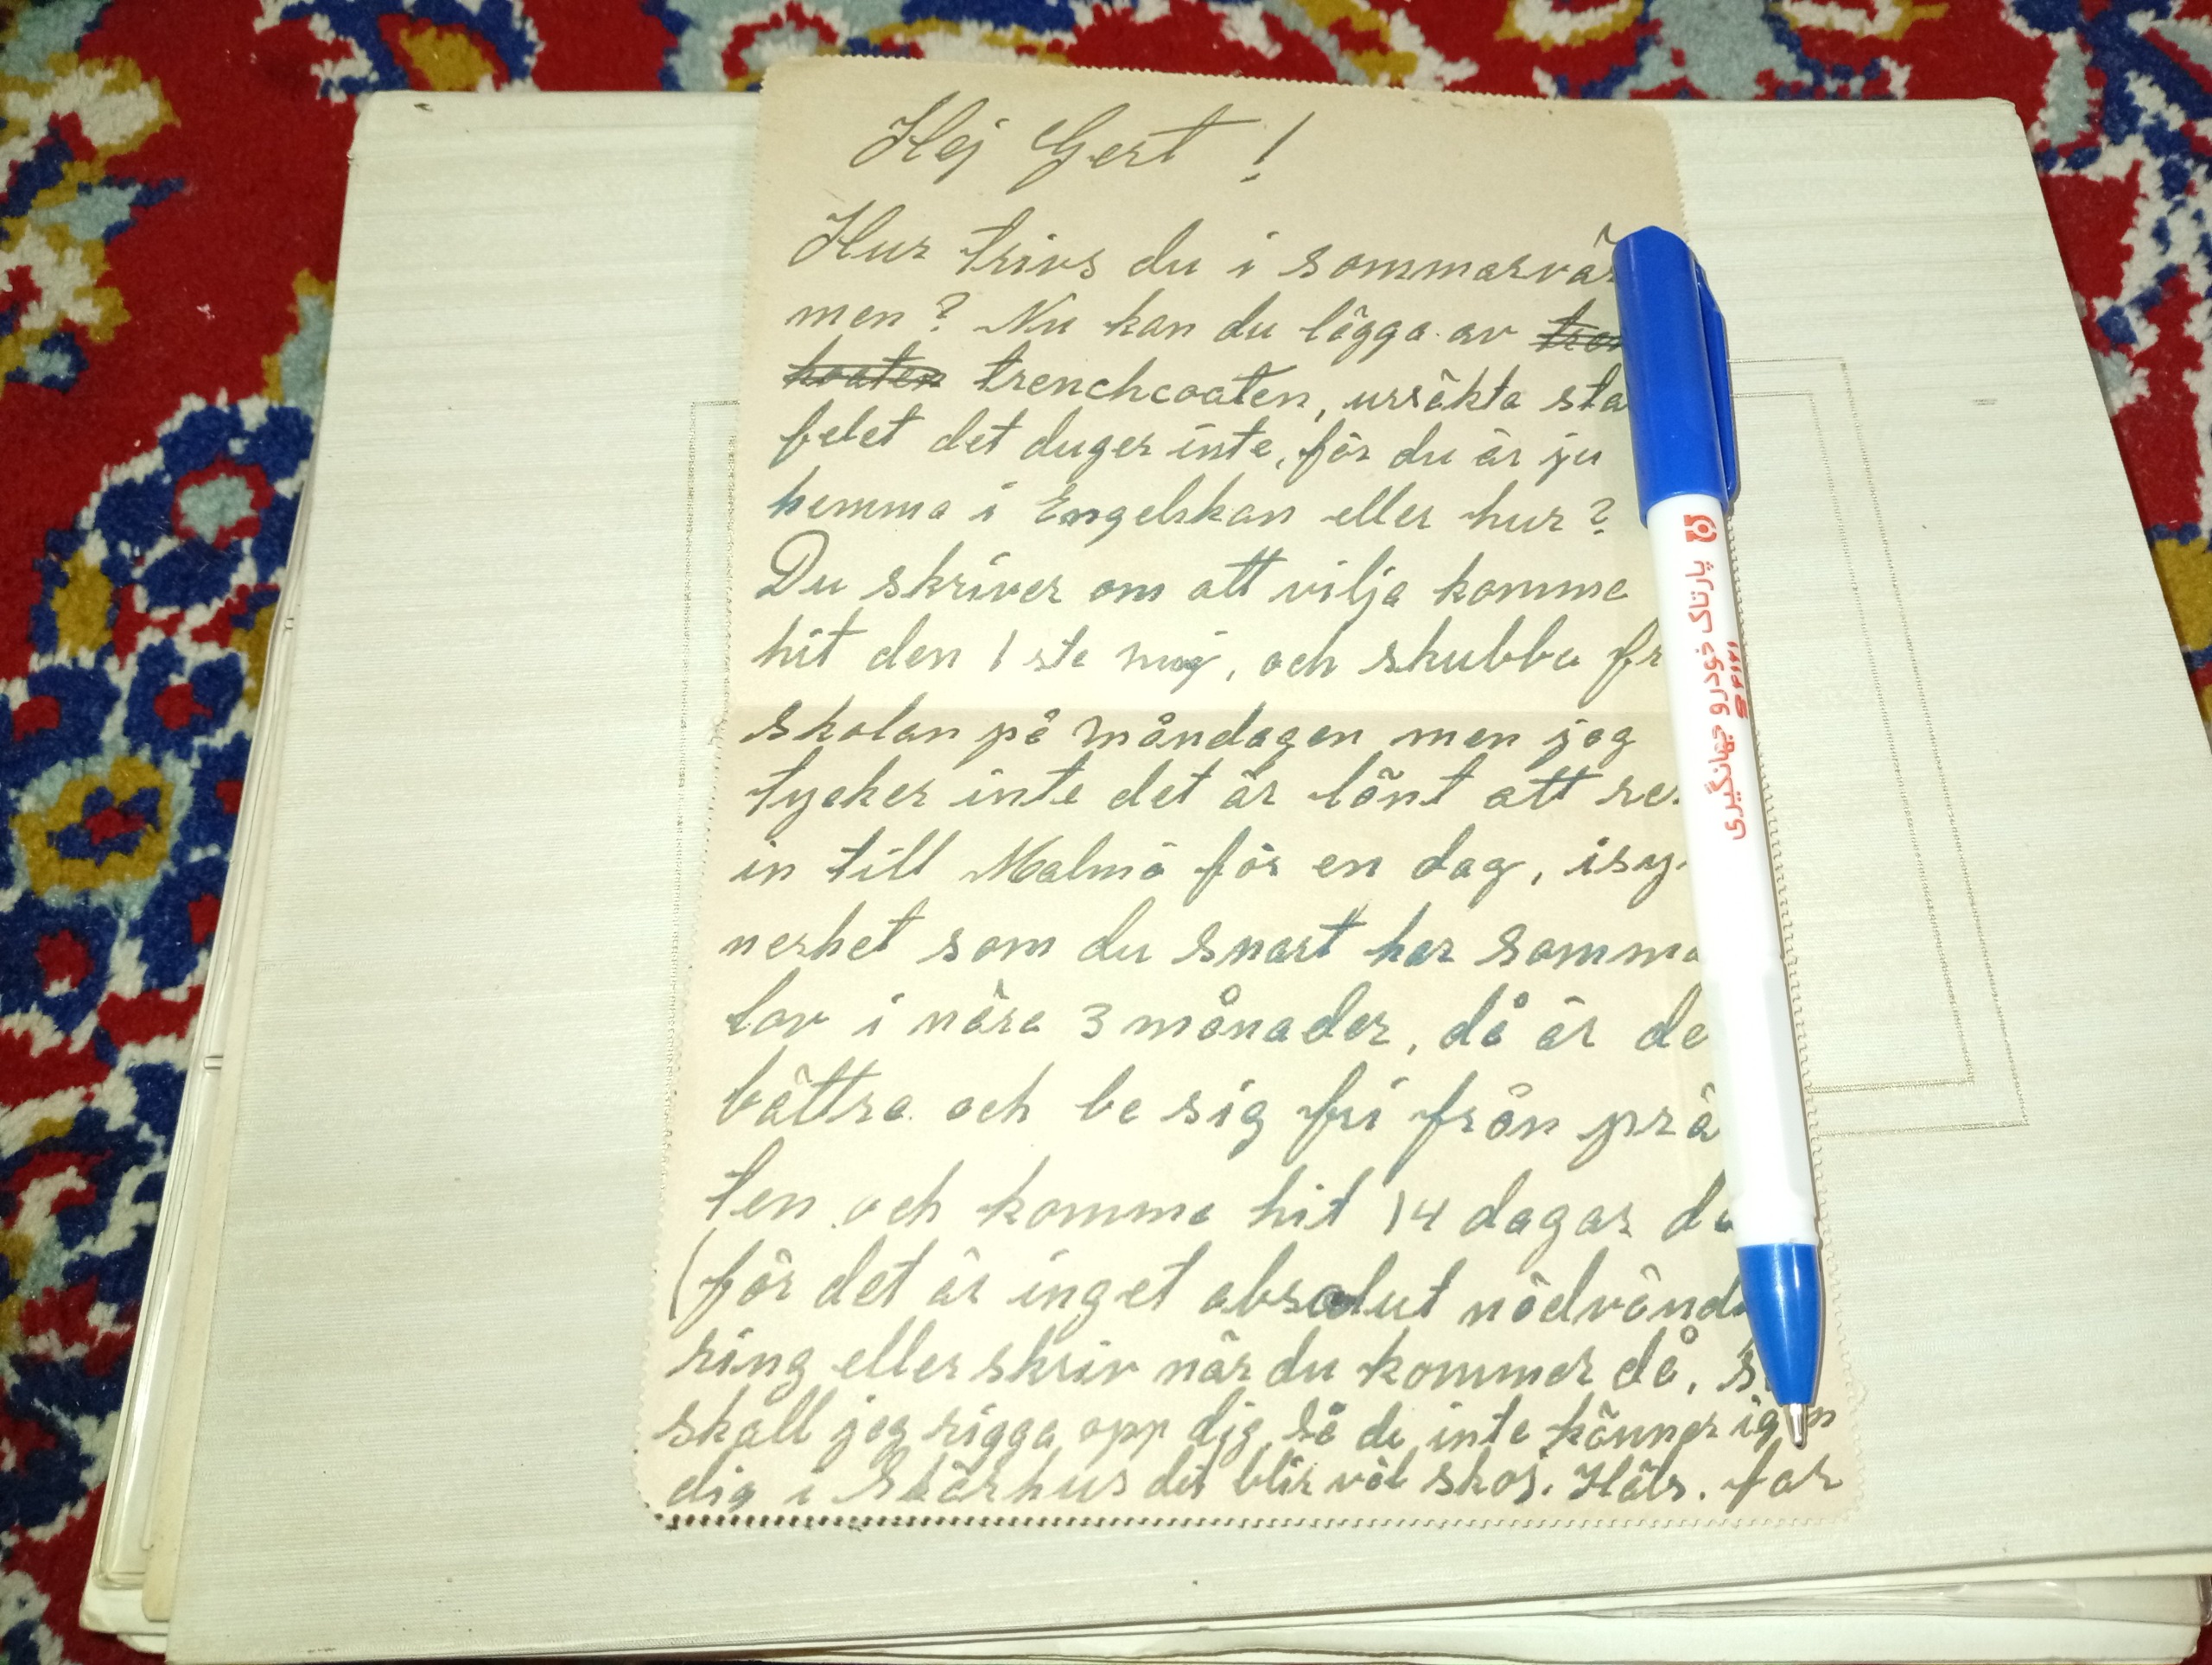 Hej Gert !
Hur trivs du i sommarvär
men? Nu kan du lägga av
koaten trenchcoaten, ursäkta sta
felet det duger inte, för du är ju
hemma i Engelskan eller hur?
Du skriver om att vilja komma
hit den 1 ste maj, och skubba fr
skolan på måndagen men jag
tycker inte det är lönt att re
in till Malmö för en dag, isy
nerhet som du snart har somma
lov i nära 3 månader, då är de
bättre och be sig fri från prä
ten och komma hit 14 dagar då
(för det är inget absolut nödvänd
ring eller skriv när du kommer då, s
skall jag rigga opp dig så de inte känner igen
dig i Skärhus det blir väl skoj. Häls. far
پارتاک خودرو جهانگیری